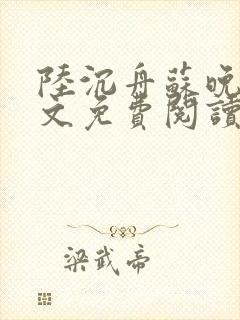 陸沉舟蘇晚
文免費閱讀
梁武帝